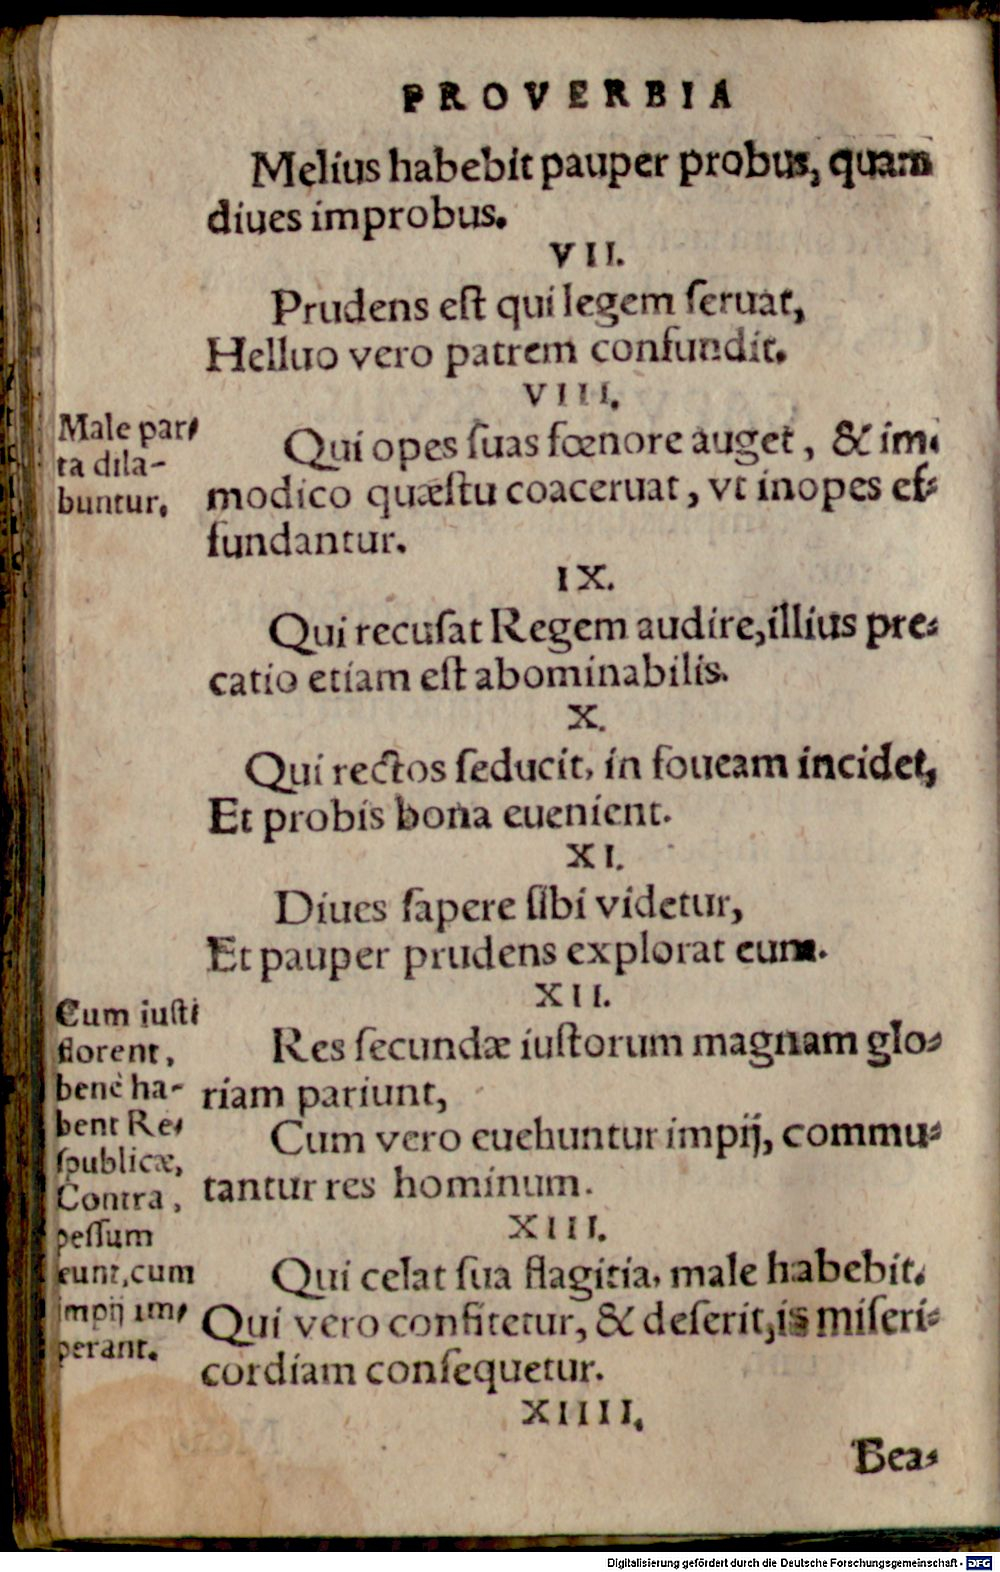 PROVERBIA
Melius habebit pauper probus, quam
diues improbus.
VII.
Prudens est qui legem ſeruat,
Helluo vero patrem confundit.
VIII.
Male par⸗
ta dila-
buntur.
Qui opes ſuas fœnore auget, & im⸗
modico quæſtu coaceruat, vt inopes ef⸗
fundantur.
IX.
Qui recuſat Regem audire, illius pre⸗
catio etiam eſt abominabilis.
X.
Qui rectos ſeducit, in foueam incidet,
Et probis bona euenient.
XI.
Diues ſapere ſibi videtur,
Et pauper prudens explorat eum.
XII.
Cum iuſti
florent,
benè ha-
bent Re⸗
ſpublicæ,
Contra,
peſſum
eunt, cum
impij im⸗
perant.
Res ſecundæ iuſtorum magnam glo⸗
riam pariunt,
Cum vero euehuntur impij, commu⸗
tantur res hominum.
XIII.
Qui celat ſua flagitia, male habebit.
Qui vero confitetur, & deſerit, is miſeri⸗
cordiam conſequetur.
XIIII.
Bea⸗
Digitalisierung gefördert durch die Deutsche Forschungsgemeinschaft - DFG